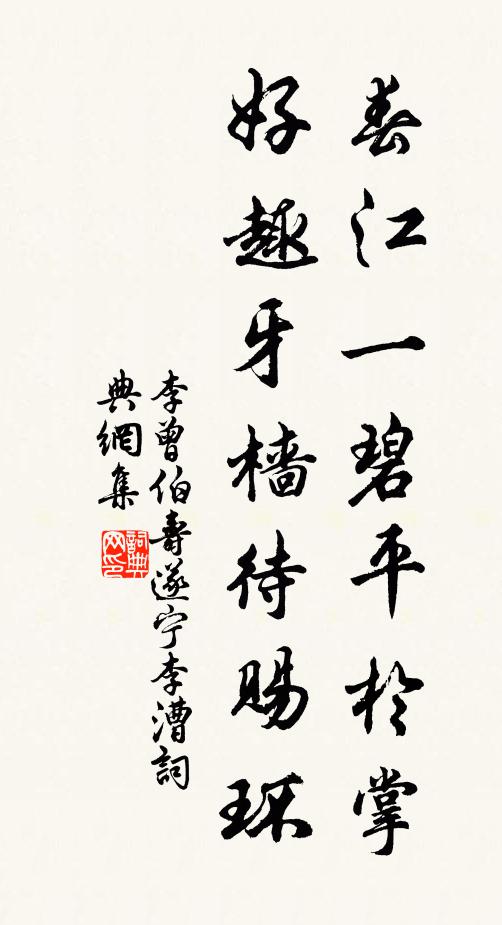 春江一碧平於掌
好趣牙樯待賜环
李曾伯壽遂宁李漕詞
典網集
詞典网印